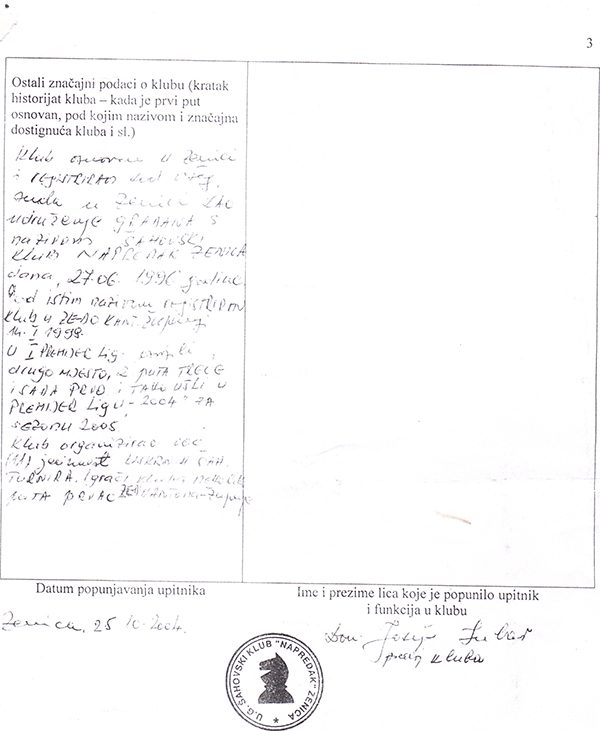 3
Ostali značajni podaci o klubu (kratak
historijat kluba – kada je prvi put
osnovan, pod kojim nazivom i značajna
dostignuća kluba i sl.)
Klub osnovan u Zenici
i registriran kod
suda u Zenici kao
udruženje građana s
nazivom ŠAHOVSKI
KLUB NAPREDAK ZENICA
dana, 27.06. 1996 godine.
Pod istim nazivom registriran
klub u ZE-DO KANT. Županij
14. I 1999.
U I PREMIJER Lig.
drugo MJESTO, 2 PUTA TREĆE
i SADA PRVO i TAKO UŠLI U
PREMIJER Ligu - 2004" ZA
SEZONU 2005.
Klub organizirao
(11) ŠAH.
TURNIRA. Igrači kluba
puta PRVAC ZE-DO KANTONA-Županije
Datum popunjavanja upitnika
Zenica, 25 10. 2004.
Ime i prezime lica koje je popunilo upitnik
i funkcija u klubu
Don Josip
kluba
U.G. ŠAHOVSKI KLUB "NAPREDAK" ZENICA